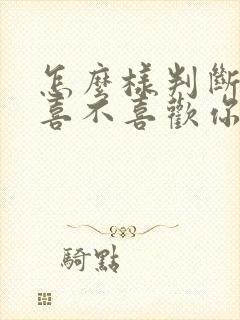 怎麼樣判斷
喜不喜歡你
騎點